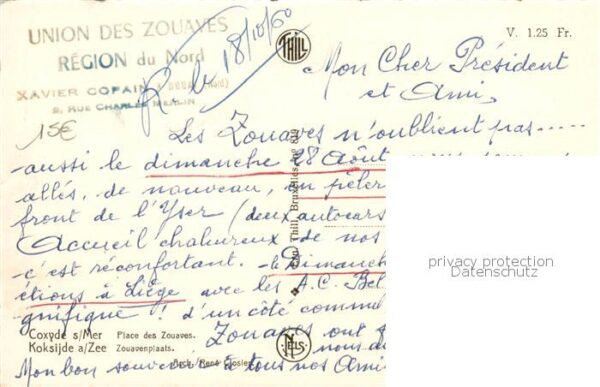 UNION DES ZOUAVES
RÉGION du Nord
XAVIER COPAIN à DOUAI (Nord)
2, RUE CHARLES MERLIN
R le 18/10/60
THILL
V. 1.25 Fr.
15€
Mon Cher Président
et Ami,
Les Zouaves n'oublient pas.....
-aussi le dimanche 28 Août
allés, de nouveau, en pèler
front de l'Yser (deux autocars
Accueil chaleureux de nos
-c'est réconfortant. -le Dimanch
étions à Liège avec les A.C. Bel
gnifique! d'un côté comme
Zouaves ont
nous
Mon bon souvenir à tous nos Ami
Thill, Bruxelles
Coxyde s/Mer Place des Zouaves.
Koksijde a/Zee Zouavenplaats.
Arch. René
NELS
privacy protection
Datenschutz